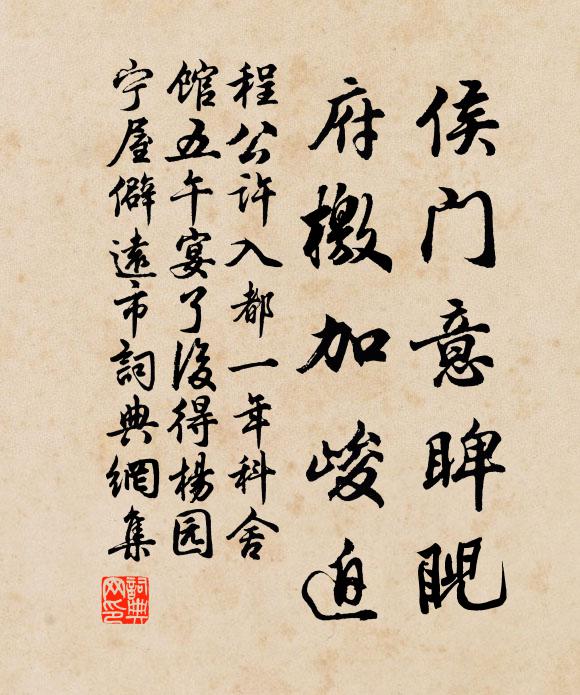 侯门意睥睨
府檄加峻迫
程公许入都一年科舍
馆五午宴了后得杨园
宁屋僻远市詞典網集
詞典网印